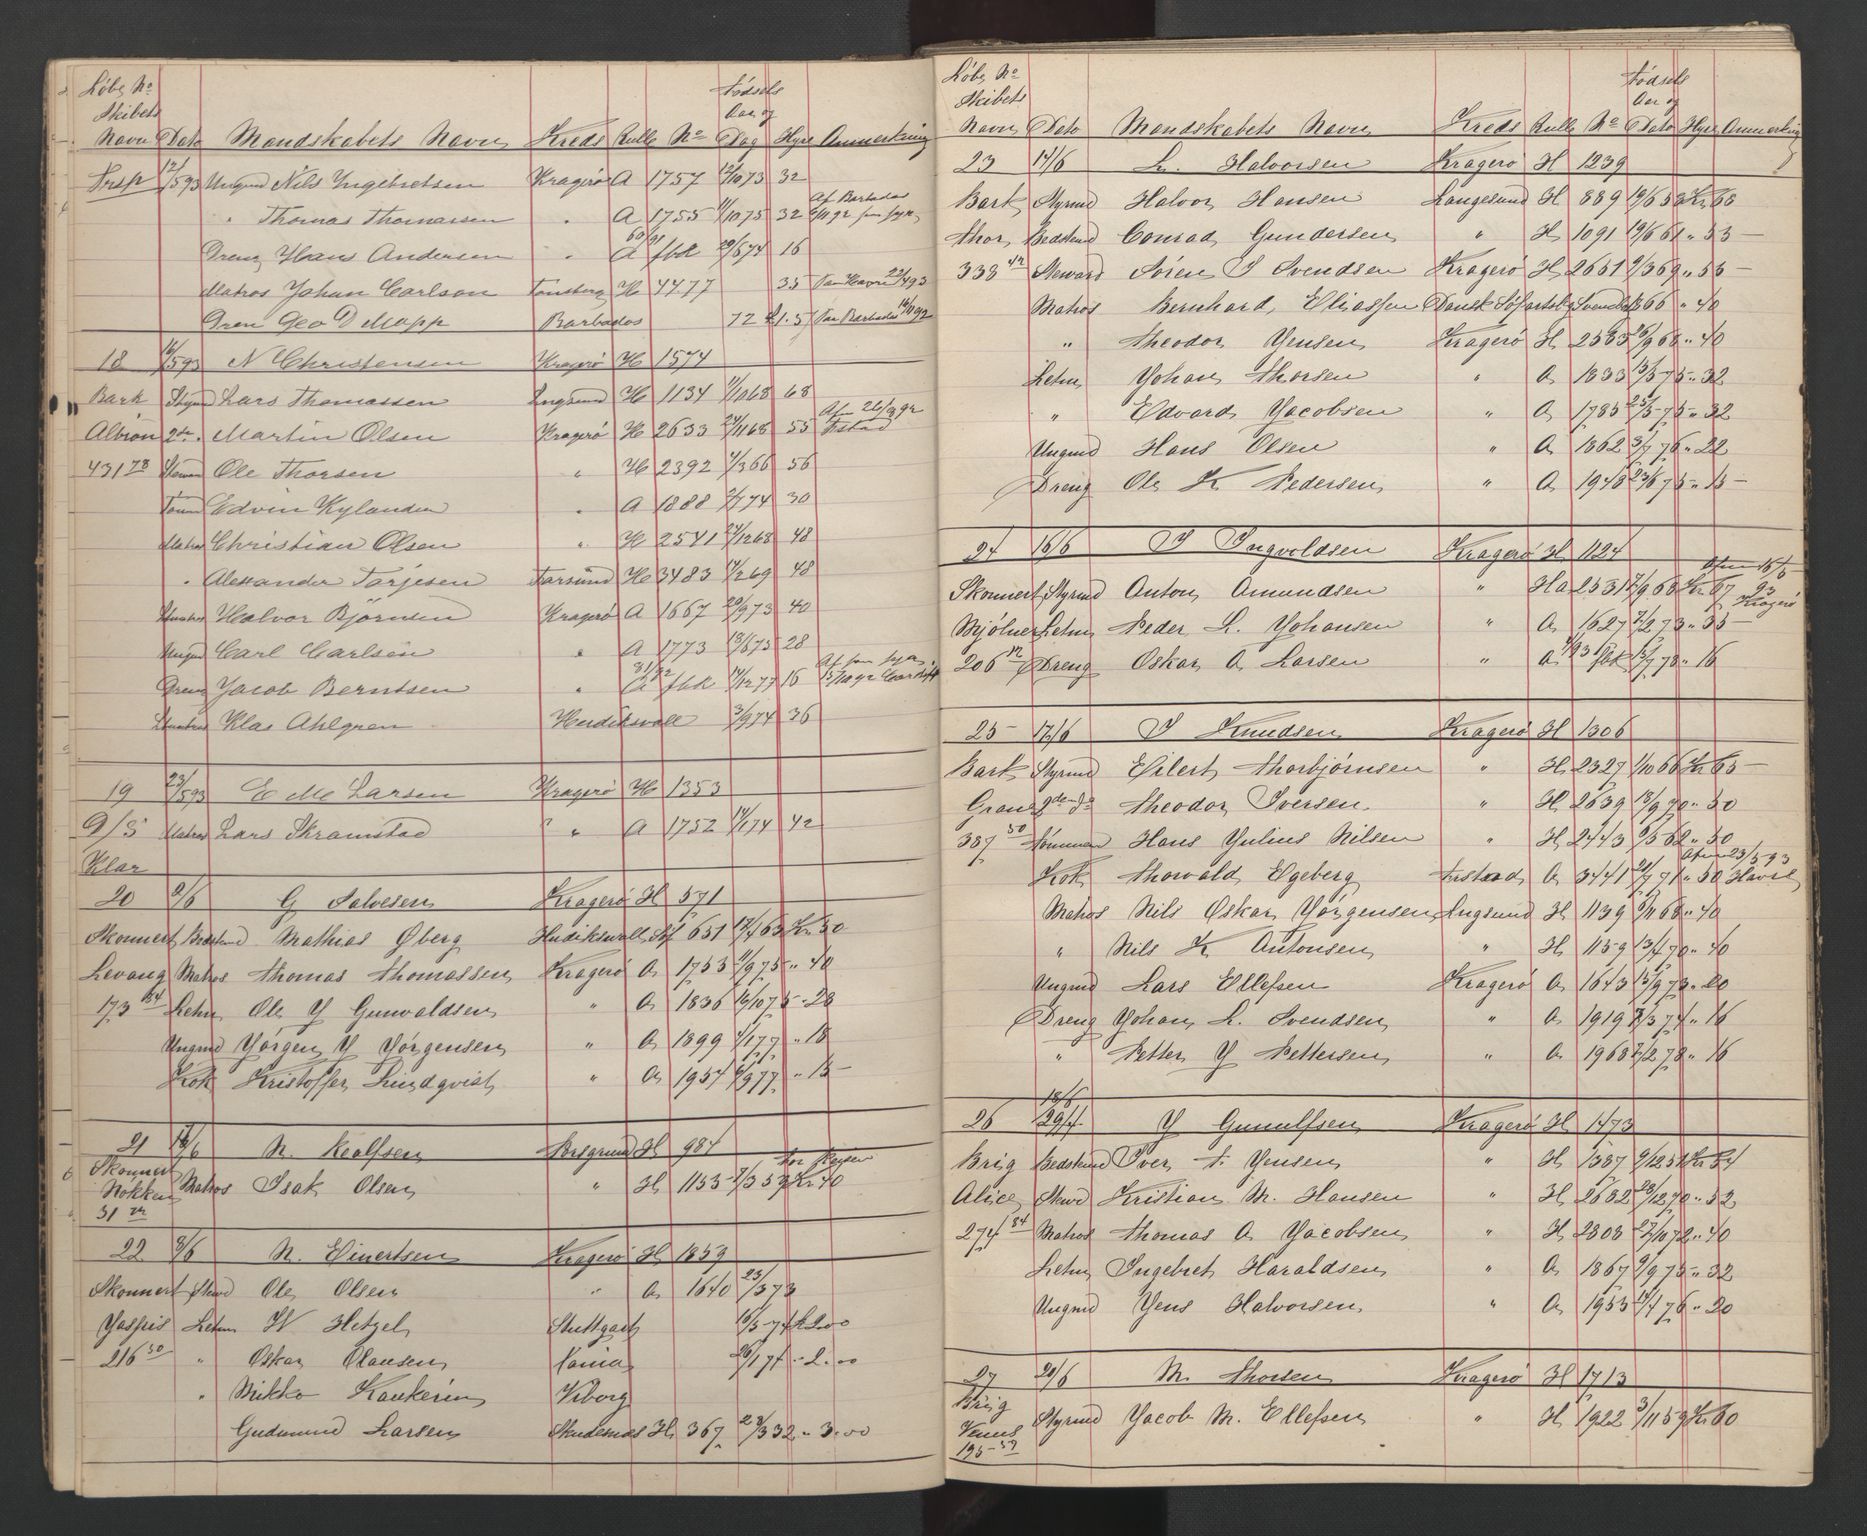 Löbe No
Skibets Födsels Aar og
Navn Dato Mandskabets Navn Kreds Rulle No Dag Hyre Anmerkning
12/5 93 Ungmd Nils Ingebretsen Kragerö A 1757 12/10 73 32
" Thomas Thomassen " A 1755 11/10 75 32 Af Barbados
Dreng Hans Andersen " A fbk 29/6 74 16
Matros Johan Carlson Tönsberg H 4477 35 Paa Havre 22/4 93
Dren Geo D Mapp Barbados 72 £1.5 Paa Barbados
18 16/5 93 N Christensen Kragerö H 1574
Bark Styrm Lars Thomassen Lngsund H 1134 11/10 68 68
Albion 2den " Martin Olsen Kragerö H 2633 24/11 68 55
431 78 Ole Thorsen " H 2392 4/3 66 56
Edvin Kylander " A 1888 2/7 74 30
Matros Christian Olsen " H 2541 24/12 68 48
" Alexander Tarjesen Farsund H 3483 14/2 69 48
Halvor Björnsen Kragerö A 1667 20/9 73 40
Ungmd Carl Carlsen " A 1773 13/6 75 28
Dreng Jacob Berntsen " A fbk 14/12 77 16
Klas Ahlgren Hudiksvall 3/9 74 36
19 23/5 93 E M Larsen Kragerö H 1353
D/S Matros Lars Skramstad " A 1752 14/1 74 42
Klar
20 2/6 G Salvesen Kragerö H 571
Skonnert Bedstmd Mathias Öberg Hudikswall 651 17/4 63 Kr 50
Levang Matros Thomas Thomassen Kragerö A 1753 9/9 75 " 40
173 84 Letm Ole J Gunvaldsen " A 1836 16/10 75 " 28
Ungmd Jörgen J Jörgensen " A 1899 4/1 77 " 18
Kok Kristoffer Lindqvist " A 1954 6/9 77 " 15
21 N. Rolfsen Brsgrund H 984
Skonnert
Nökken Matros Isak Olsen " H 1153 7/3 59 Kr 40
31
22 8/6 N. Einertsen Kragerö H 1859
Skonnert Stwd Ole Olsen " A 1640 23/3 73
Jaspis Letm W Hetzel Stuttgart 16/5 74 2.00
216 50 " Oskar Olausen 26/1 71 " 2.00
" Mikko Kaukerin Viborg
Gudmund Larsen Skudesnes H 367 28/3 32 " 3.00
Löbe No
Skibets Födsels Aar og
Navn Dato Mandskabets Navn Kreds Rulle No Dato Hyre Anmerkning
23 14/6 L. Halvorsen Kragerö H 1239
Bark Styrmd Halvor Hansen Langesund H 889 19/6 58 Kr 68
Thor Bedstmd Conrad Gundersen " H 1091 19/6 61 " 53
338 42 Steward Sören J Svendsen Kragerö H 2651 9/3 69 " 55
Matros Bernhard Eliassen Dansk Söfartsbg Svendborg 66 " 40
" Theodor Jensen Kragerö H 2565 16/9 68 " 40
Letm Johan Thorsen " A 1833 13/5 75 " 32
" Edvard Jacobsen " A 1785 25/5 75 " 32
Ungmd Hans Olsen " A 1862 3/7 76 " 22
Dreng Ole K Pedersen " A 1948 23/6 75 " 15
24 16/6 J Ingvoldsen Kragerö H 1124
Skonnert Styrmd Anton Amundsen " Ha 2531 17/9 68 Kr 67 Kragerö
Mjölner Letm Peder L. Johansen " A 1627 7/2 73 " 35
206 12 Dreng Oskar A Larsen " A fbk 13/7 78 " 16
25 17/6 J Knudsen Kragerö H 1306
Bark Styrmd Eilert Thorbjörnsen " H 2327 1/10 66 Kr 65
Grane 2den do Theodor Iversen " H 2639 18/9 70 " 50
387 50 Tömmerm Hans Julius Nilsen " H 2443 9/5 62 " 50
Kok Thorvald Egeberg A 3441 21/7 71 " 50 Havre
Matros Nils Oskar Jörgensen Lngsund H 1139 6/11 68 " 40
" Nils K Antonsen " H 1159 13/4 70 " 40
Ungmd Lars Ellefsen Kragerö A 1643 15/9 73 " 20
Dreng Johan L. Svendsen " A 1919 7/3 74 " 16
" Petter J Pettersen " A 1968 7/2 78 " 16
18/6
26 29/4 J Gunulfsen Kragerö H 1473
Brig Bedstmd Iver T. Jensen " H 1387 9/12 51 Kr 54
Alice Stwd Kristian M. Hansen " H 2682 28/12 70 " 52
274 84 Matros Thomas A Jacobsen " H 2808 27/10 72 " 40
Letm Ingebret Haraldsen " A 1867 9/9 75 " 32
Ungmd Jens Halvorsen " A 1953 21/4 76 " 20
27 20/6 M. Thorsen Kragerö H 1713
Brig
Venus Styrmd Jacob M. Ellefsen " H 1922 3/11 59 Kr 60
195 59